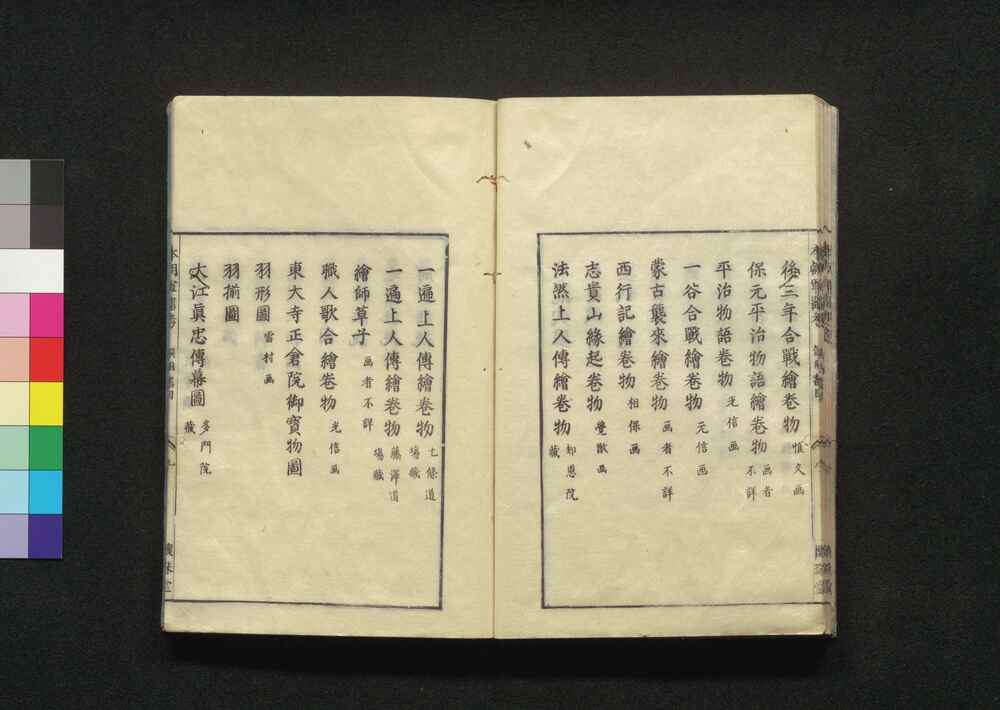 後三年合戰繪卷物 惟久画
保元平治物語繪卷物 画者不詳
平治物語卷物 光信画
一谷合戰繪卷物 元信画
蒙古襲來繪卷物 画者不詳
西行記繪卷物 相保画
志貴山緣起卷物 覺猷画
法然上人傳繪卷物 知恩院藏
一遍上人傳繪卷物 七條道場藏
一遍上人傳繪卷物 藤澤道場藏
繪師草子 画者不詳
職人歌合繪卷物 光信画
東大寺正倉院御寳物圖
羽形圖 雪村画
羽揃圖
大江眞忠傳幕圖 多門院藏